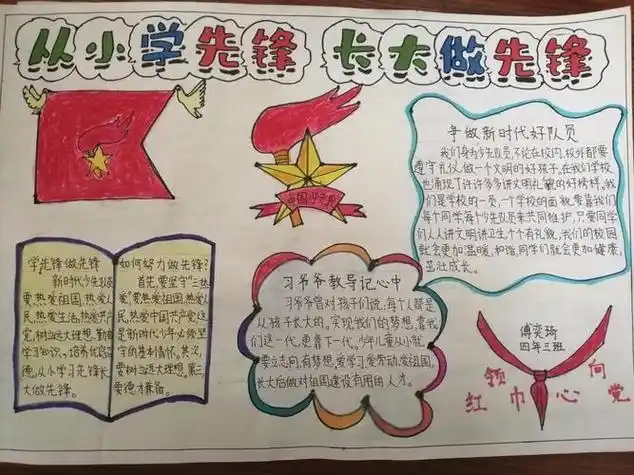 从小学先锋 长大做先锋
中国少先队
争做新时代好队员
我们身为少先队员,不论在校内,校外都要
遵守礼仪,做一个文明的好孩子,在我们学校
也涌现了许许多多讲文明礼貌的好榜样,我
们是学校的一员,一个学校的面貌要靠我们
每个同学每个少先队员来共同维护,只要同学
们人人讲文明讲卫生个个有礼貌,我们的校园
就会更加温暖,和谐,同学们就会更加健康,
茁壮成长。
学先锋做先锋
新时代少先队员
要热爱祖国,热爱人
民,热爱生活,热爱共产
党,树立远大理想,勤奋
学习知识,培养优良品
德,从小学习先锋长
大做先锋。
如何努力做先锋?
首先,要坚守"三热
爱"。要热爱祖国,热爱人
民,热爱中国共产党这
是新时代少年必须坚
守的基本情怀。其次,
要树立远大理想。第三,
要德才兼备。
习爷爷教导记心中
习爷爷曾对孩子们说,每个人都是
从孩子长大的,实现我们的梦想,靠我
们这一代,更靠下一代,少年儿童从小就
要立志向,有梦想,爱学习,爱劳动,爱祖国,
长大后做对祖国建设有用的人才。
傅奕琦
四年三班
红领巾心向党